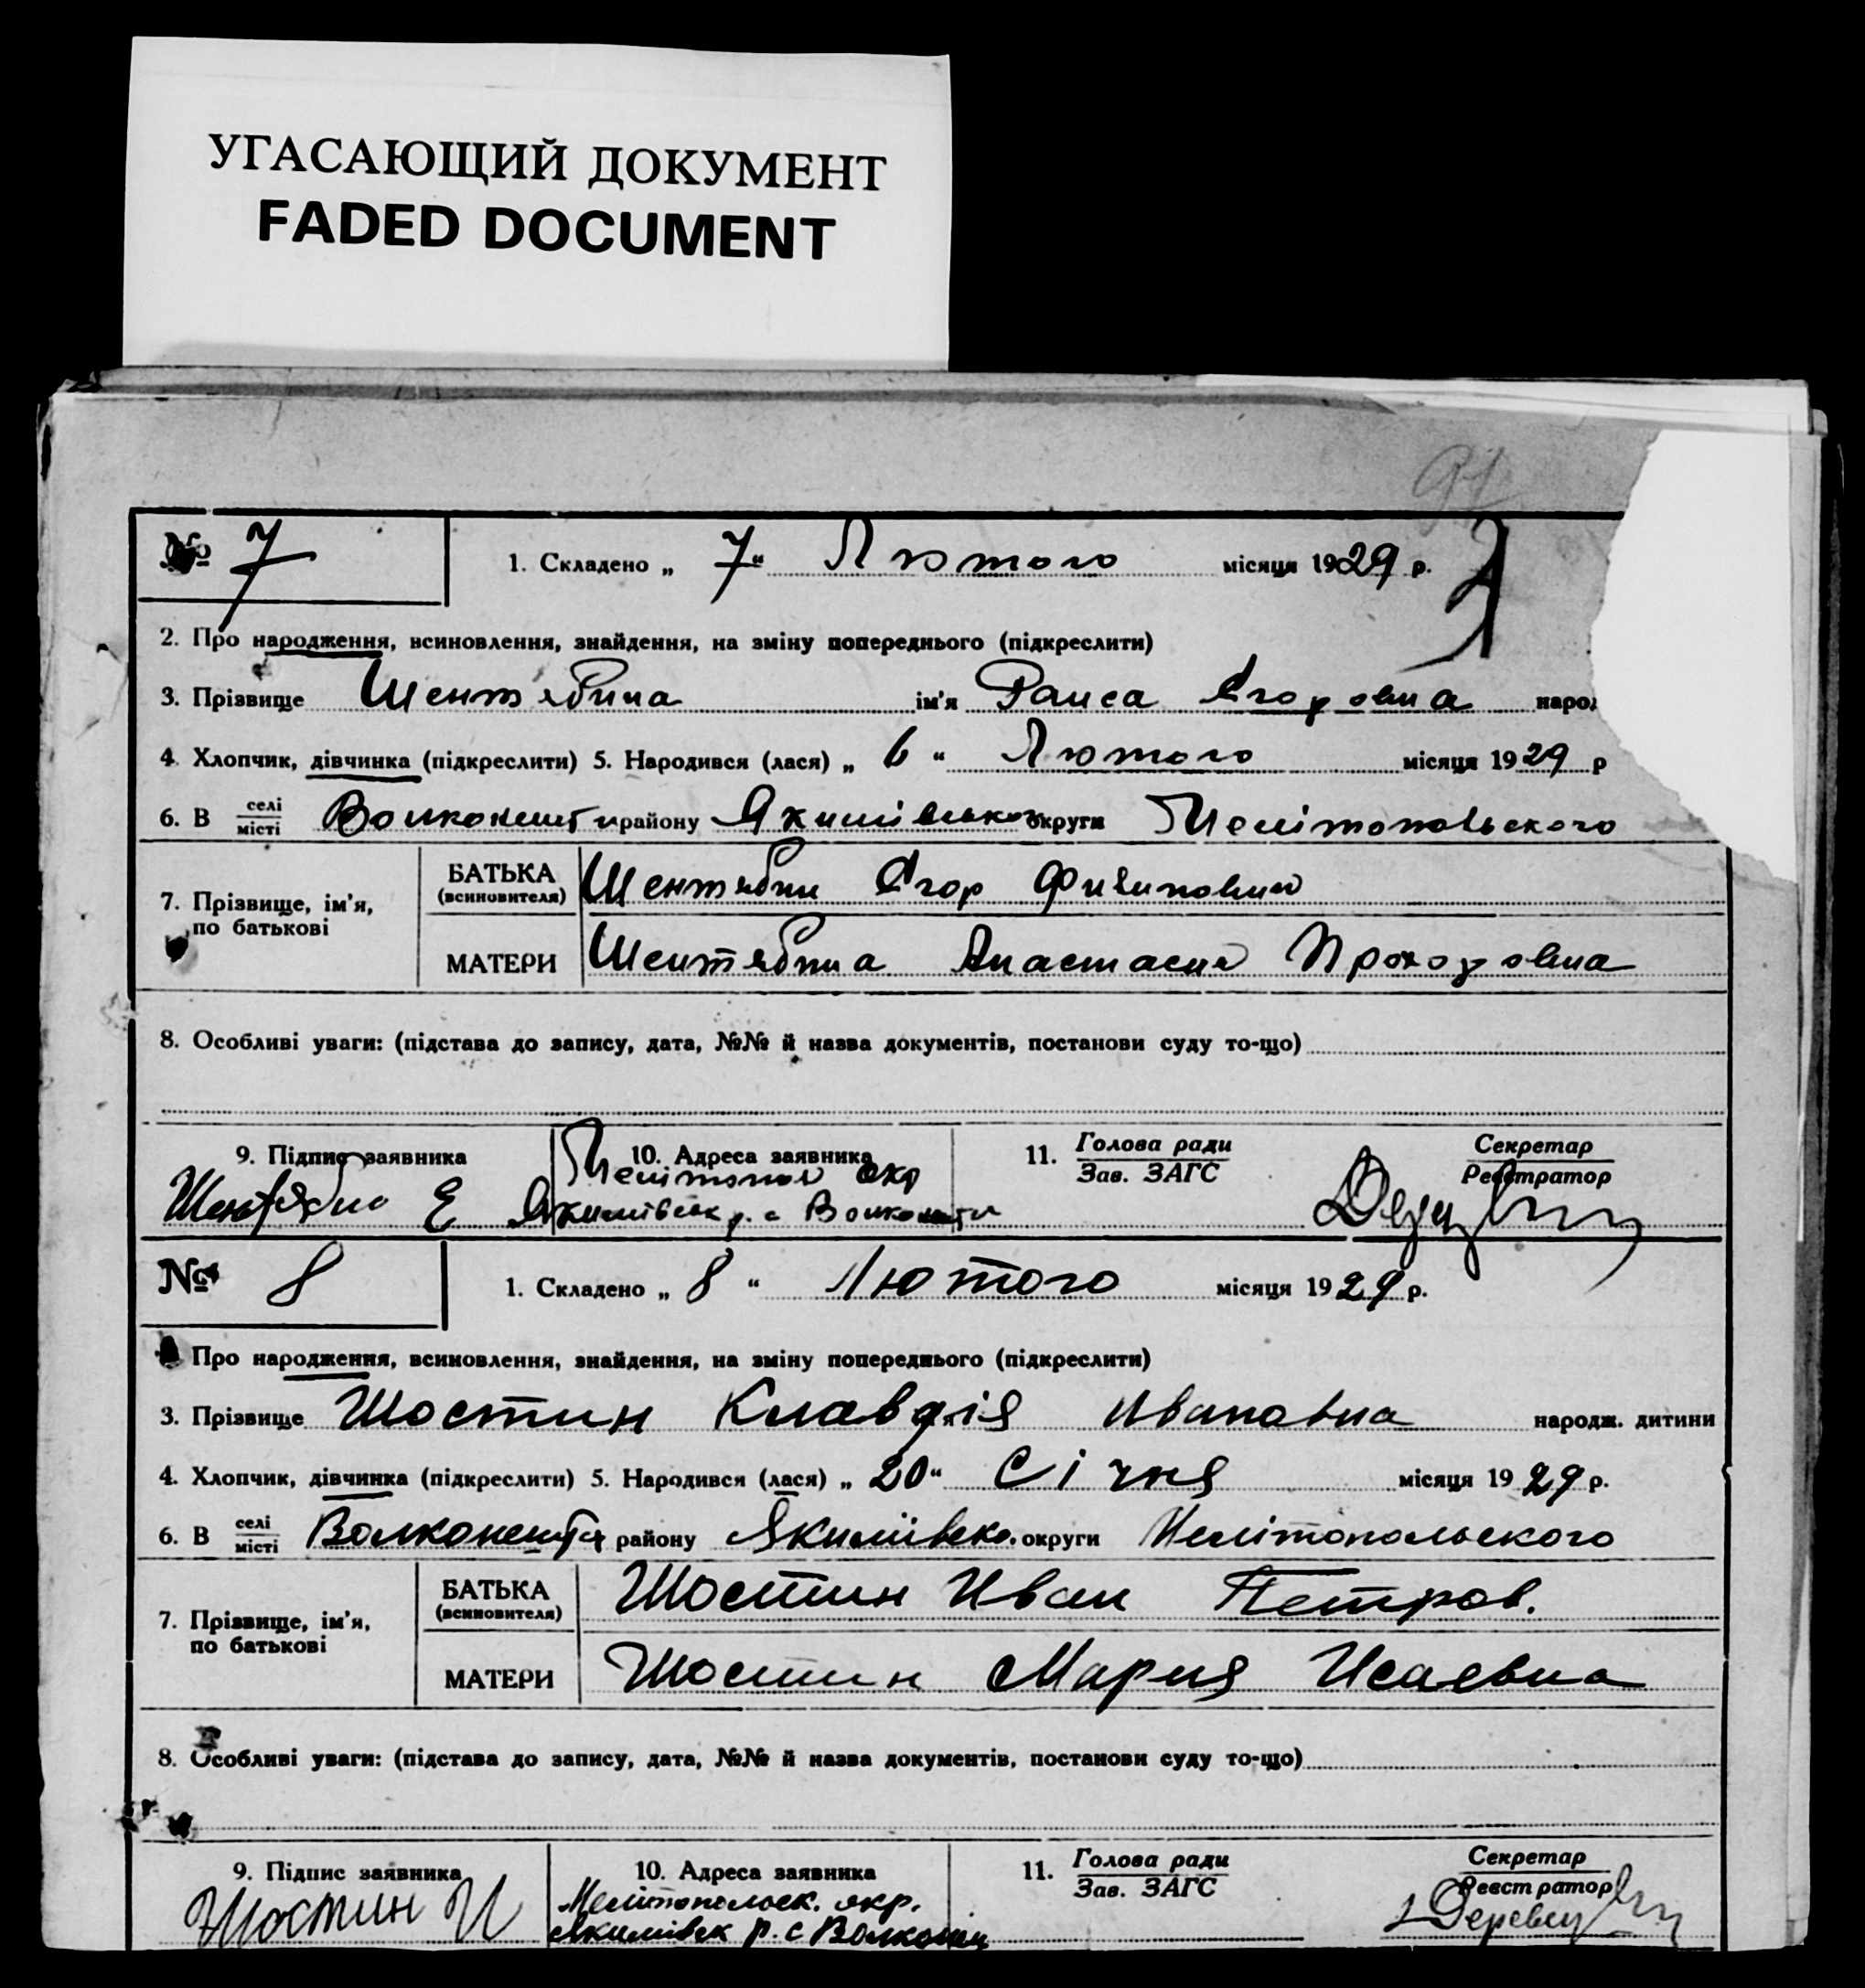 УГАСАЮЩИЙ ДОКУМЕНТ
FADED DOCUMENT
91
№ 7 1. Складено „ 7 “ Лютого місяця 1929 р.
2. Про народження, всиновлення, знайдення, на зміну попереднього (підкреслити)
3. Прізвище Шентябина ім'я Раиса Егоровна народ
4. Хлопчик, дівчинка (підкреслити) 5. Народився (лася) „ 6 “ Лютого місяця 1929 р
6. В селі/місті району Якимівського округи Мелітопольского
7. Прізвище, ім'я, по батькові
БАТЬКА (всиновителя) Шентябин Егор Филипович
МАТЕРИ Шентябина Анастасия Прохоровна
8. Особливі уваги: (підстава до запису, дата, №№ й назва документів, постанови суду то-що)
9. Підпис заявника 10. Адреса заявника 11. Голова ради/Зав. ЗАГС Секретар/Реєстратор
Мелитопол окр
Шентябин Е Якимівськ р. с
№ 8 1. Складено „ 8 “ Лютого місяця 1929 р.
Про народження, всиновлення, знайдення, на зміну попереднього (підкреслити)
3. Прізвище Шостин Клавдія Ивановна народж. дитини
4. Хлопчик, дівчинка (підкреслити) 5. Народився (лася) „ 20 “ Січня місяця 1929 р.
6. В селі/місті району Якимівско. округи Мелітопольского
7. Прізвище, ім'я, по батькові
БАТЬКА (всиновителя) Шостин Иван Петров.
МАТЕРИ Шостин Мария Исаевна
8. Особливі уваги: (підстава до запису, дата, №№ й назва документів, постанови суду то-що)
9. Підпис заявника 10. Адреса заявника 11. Голова ради/Зав. ЗАГС Секретар/Реєстратор
Мелітопольск. окр.
Шостин И Якимівск р. с